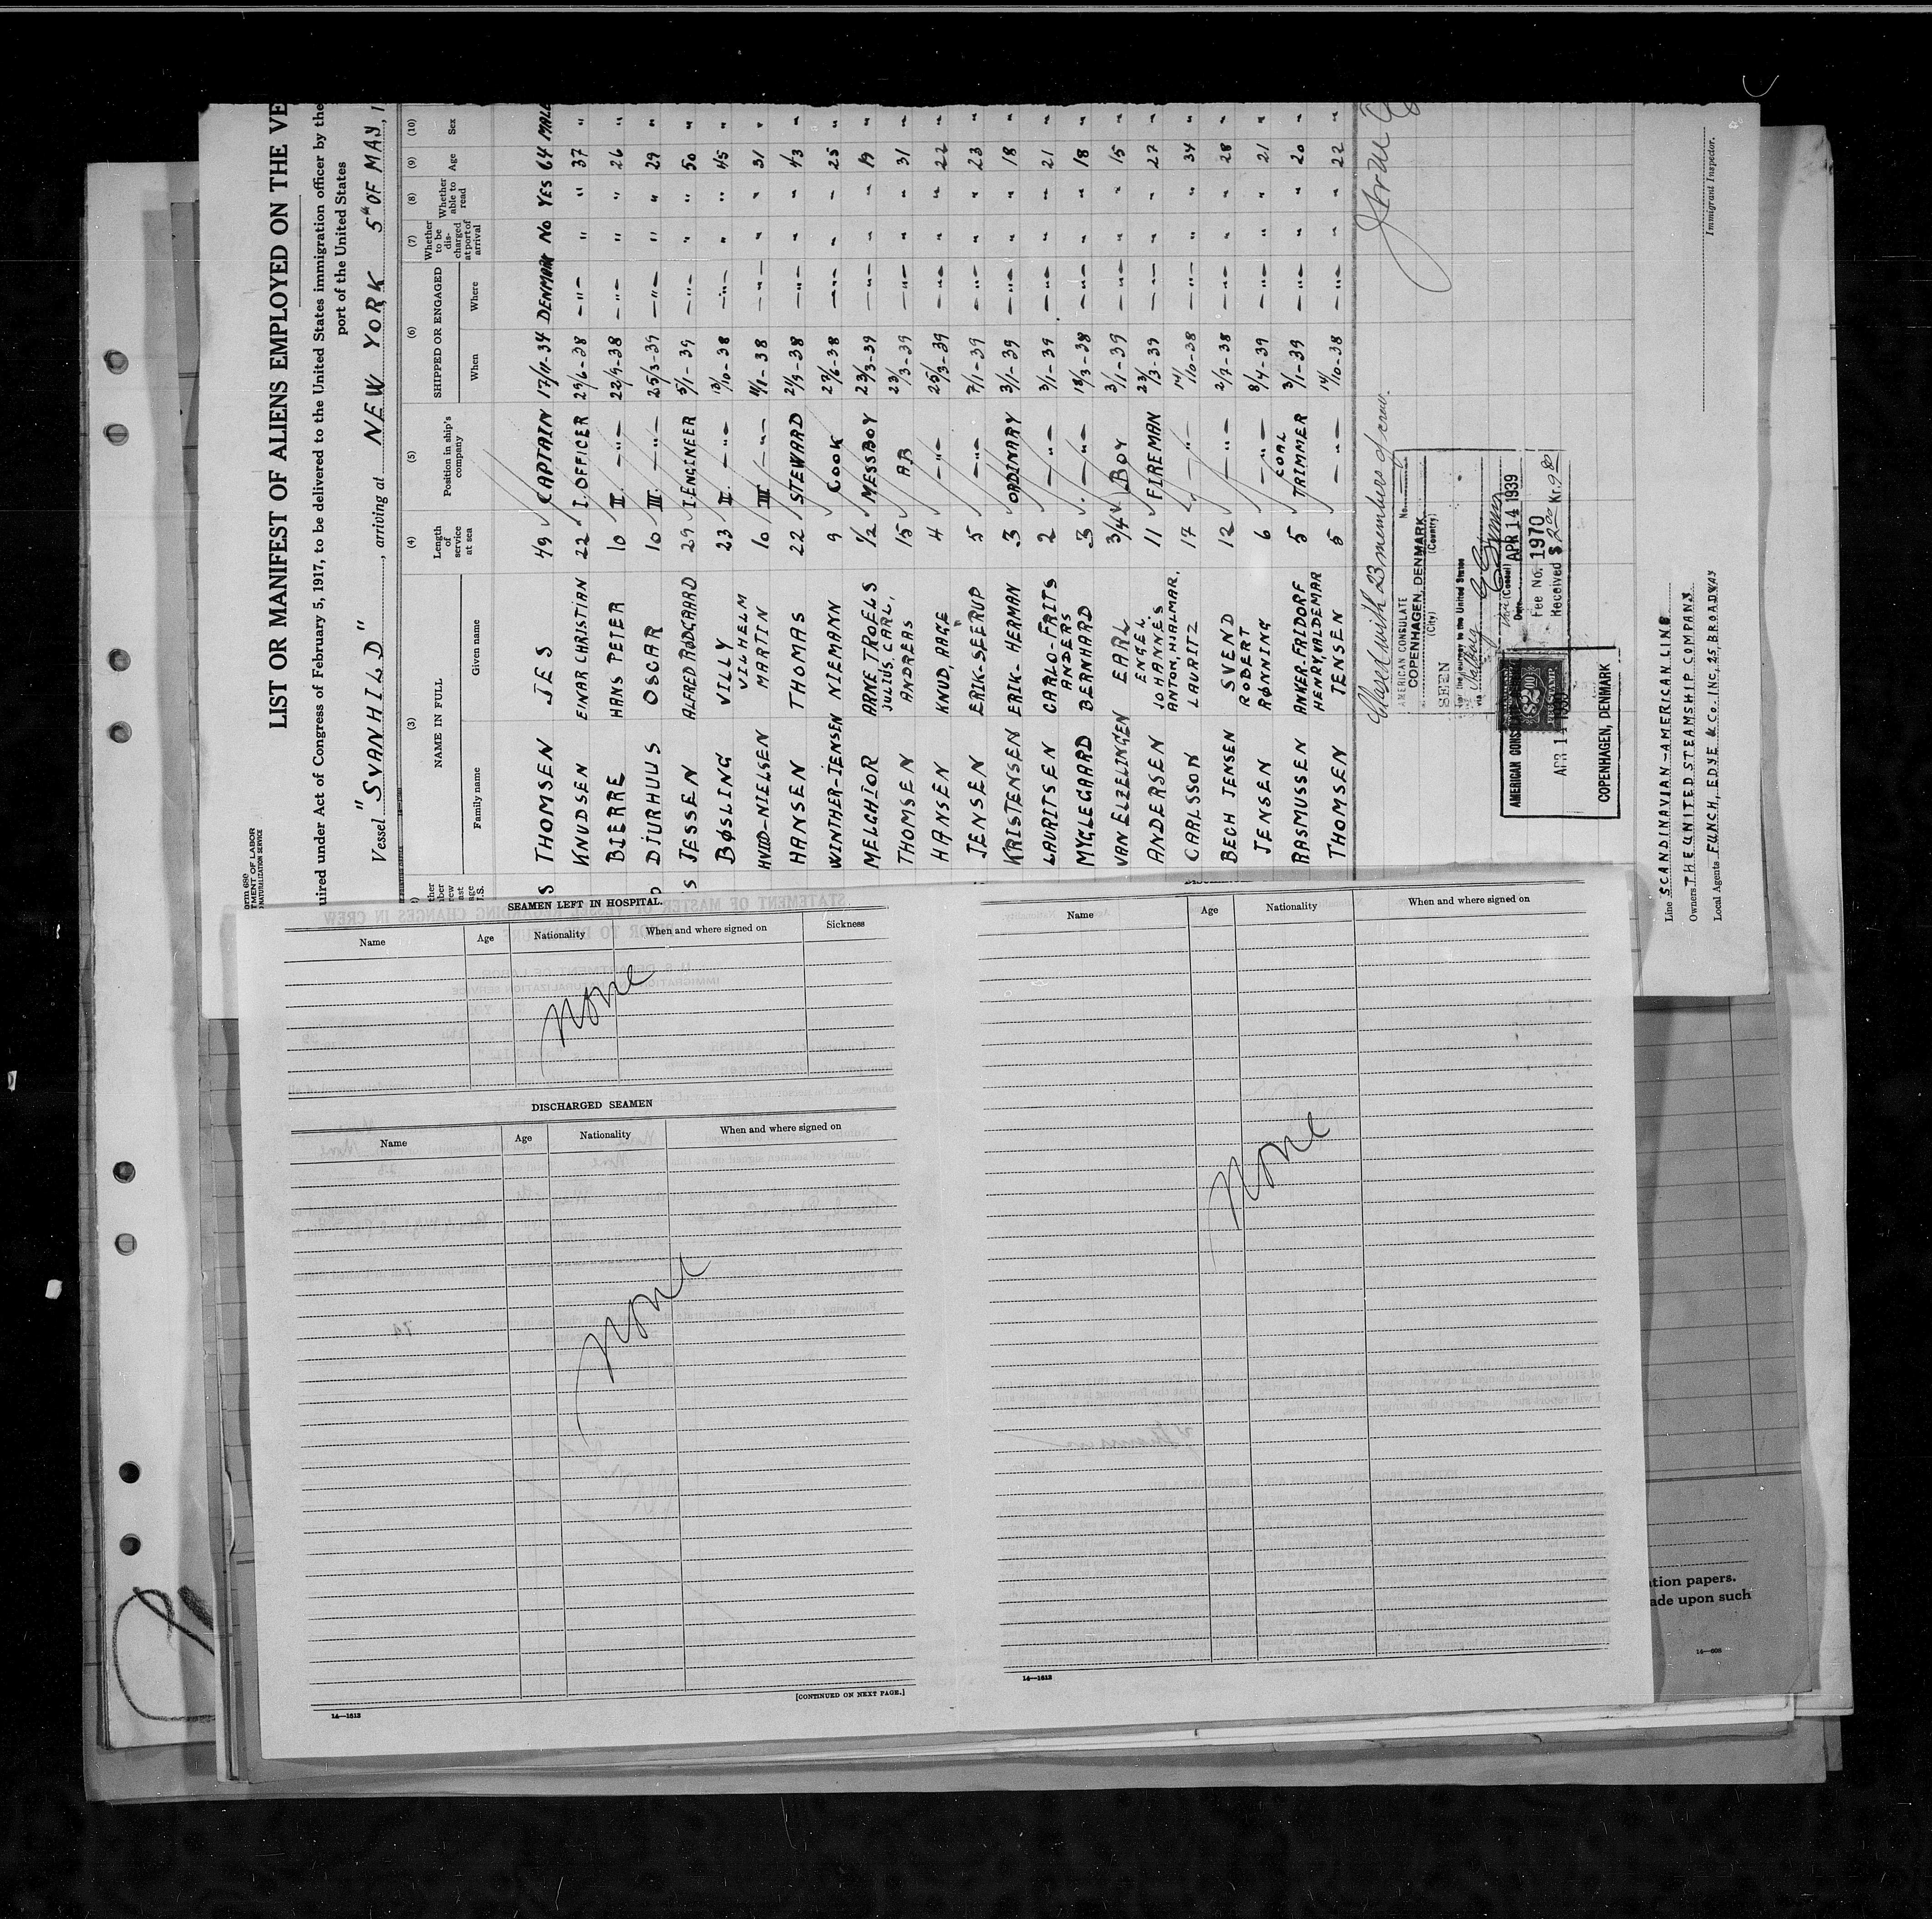 LIST OR MANIFEST OF ALIENS EMPLOYED ON THE VE
uired under Act of Congress of February 5, 1917, to be delivered to the United States immigration officer by the
port of the United States
Vessel "SVANHILD", arriving at NEW YORK 5th OF MAY, 1
(3) (4) (5) (6) (7) (8) (9) (10)
NAME IN FULL Length of service at sea Position in ship's company SHIPPED OR ENGAGED Whether to be discharged at port of arrival Whether able to read Age Sex
Family name Given name When Where
THOMSEN JES 49 CAPTAIN 17/11-34 DENMARK NO YES 64 MALE
KNUDSEN EINAR CHRISTIAN 22 I. OFFICER 29/6-38 -"- " " 37 "
BJERRE HANS PETER 10 II. -"- 22/9-38 -"- " " 26 "
DJURHUUS OSCAR 10 III. -"- 25/3-39 -"- " " 29 "
JESSEN ALFRED RØDGAARD 29 I. ENGINEER 5/1-39 -"- " " 50 "
BØSLING VILLY 23 II. -"- 13/10-38 -"- " " 45 "
HVIID-NIELSEN VILHELM MARTIN 10 III -"- 11/1-38 -"- " " 31 "
HANSEN THOMAS 22 STEWARD 21/9-38 -"- " " 43 "
WINTHER-JENSEN NIEMANN 9 COOK 27/6-38 -"- " " 25 "
MELCHIOR ARNE TROELS 1/2 MESSBOY 23/3-39 -"- " " 19 "
THOMSEN JULIUS, CARL, ANDREAS 15 AB 23/3-39 -"- " " 31 "
HANSEN KNUD, AAGE 4 -"- 25/3-39 -"- " " 22 "
JENSEN ERIK-SEERUP 5 -"- 7/1-39 -"- " " 23 "
KRISTENSEN ERIK-HERMAN 3 ORDINARY 3/1-39 -"- " " 18 "
LAURITSEN CARLO-FRITS 2 -"- 3/1-39 -"- " " 21 "
MYGLEGAARD ANDERS BERNHARD 3 -"- 18/3-38 -"- " " 18 "
VAN ELZELINGEN EARL 3/4 BOY 3/1-39 -"- " " 15 "
ANDERSEN ENGEL JOHANNES 11 FIREMAN 23/3-39 -"- " " 27 "
CARLSSON ANTON, HJALMAR, LAURITZ 17 -"- 14/10-38 -"- " " 34 "
BECH JENSEN SVEND 12 -"- 2/7-38 -"- " " 28 "
JENSEN ROBERT RØNNING 6 -"- 8/4-39 -"- " " 21 "
RASMUSSEN ANKER-FRIDORF 5 COAL TRIMMER 3/1-39 -"- " " 20 "
THOMSEN HENRY, VALDEMAR JENSEN 5 -"- 14/10-38 -"- " " 22 "
Closed with 23 members of crew.
AMERICAN CONSULATE No.
COPENHAGEN, DENMARK
(City) (Country)
SEEN
For the journey to the United States
via
Date APR 14 1939
Fee No. 1970
Received $ 2.00 Kr. 9.80
APR 14 1939
COPENHAGEN, DENMARK
Line SCANDINAVIAN-AMERICAN LINE
Owners THE UNITED STEAMSHIP COMPANY
Local Agents FUNCH, EDYE & Co. INC, 25, BROADWAY
Immigrant Inspector.
SEAMEN LEFT IN HOSPITAL
Name Age Nationality When and where signed on Sickness
None
DISCHARGED SEAMEN
Name Age Nationality When and where signed on
None
[CONTINUED ON NEXT PAGE.]
14—1613
Name Age Nationality When and where signed on
None
14—1613
tion papers.
ade upon such
14—608